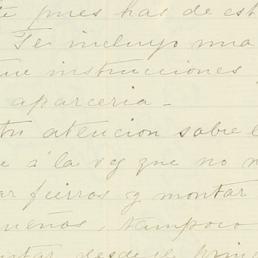 te pues has de est
Te incluyo una
instrucciones
aparceria -
tu atencion sobre l
á la vez que no
ar fierros y montar
tampoco
desde el prin